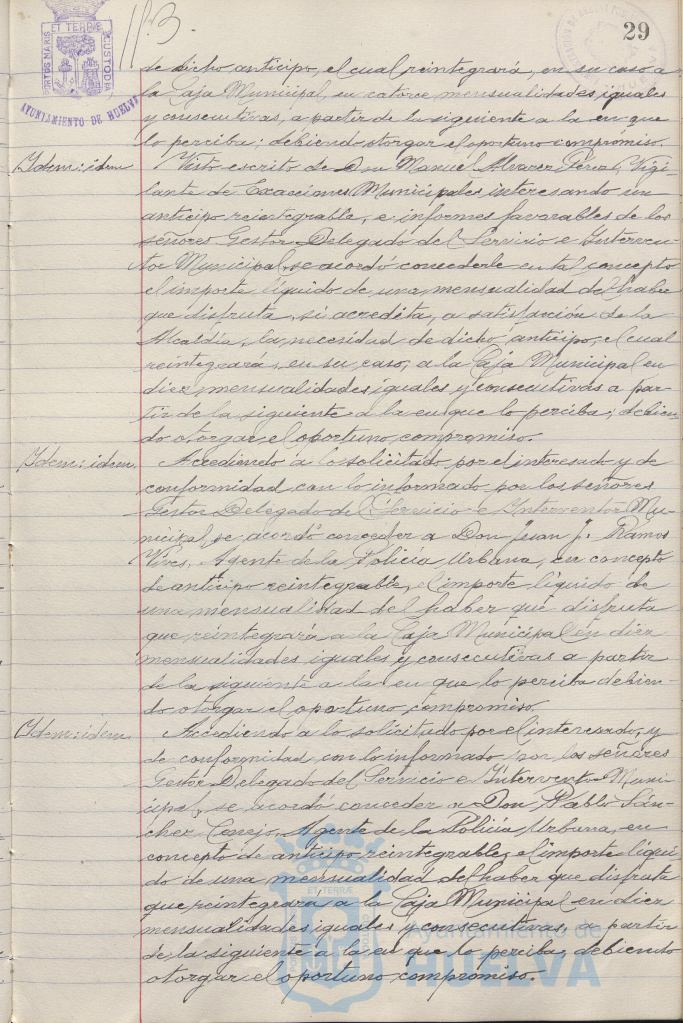 29
PORTUS MARIS ET TERRÆ CUSTODIA
AYUNTAMIENTO DE HUELVA
de dicho anticipo, el cual reintegrará, en su caso a
la Caja Municipal, en catorce mensualidades iguales
y consecutivas, a partir de la siguiente a la en que
lo perciba; debiendo otorgar el oportuno compromiso.
Idem: idem
Visto escrito de Don Manuel Alvarez Pérez, Vigi-
lante de Exacciones Municipales interesando un
anticipo reintegrable, e informes favorables de los
señores Gestor Delegado del Servicio e Interven-
tor Municipal, se acordó concederle en tal concepto
el importe líquido de una mensualidad del haber
que disfruta, si acredita, a satisfacción de la
Alcaldía, la necesidad de dicho anticipo, el cual
reintegrará, en su caso, a la Caja Municipal en
diez mensualidades iguales y consecutivas a par-
tir de la siguiente a la en que lo perciba; debien-
do otorgar el oportuno compromiso.
Idem: idem.
Accediendo a lo solicitado por el interesado y de
conformidad con lo informado por los señores
Gestor Delegado del Servicio e Interventor Mu-
nicipal, se acordó conceder a Don Juan J. Ramos
Vives, Agente de la Policía Urbana, en concepto
de anticipo reintegrable, el importe líquido de
una mensualidad del haber que disfruta
que reintegrará a la Caja Municipal en diez
mensualidades iguales y consecutivas a partir
de la siguiente a la en que lo perciba debien-
do otorgar el oportuno compromiso.
Idem: idem.
Accediendo a lo solicitado por el interesado, y
de conformidad con lo informado por los señores
Gestor Delegado del Servicio e Interventor Muni-
cipal, se acordó conceder a Don Pablo Sán-
chez Conejo, Agente de la Policía Urbana, en
concepto de anticipo reintegrable, el importe líqui-
do de una mensualidad del haber que disfruta
que reintegrará a la Caja Municipal en diez
mensualidades iguales y consecutivas, a partir
de la siguiente a la en que lo perciba, debiendo
otorgar el oportuno compromiso.
Ayuntamiento de
HUELVA